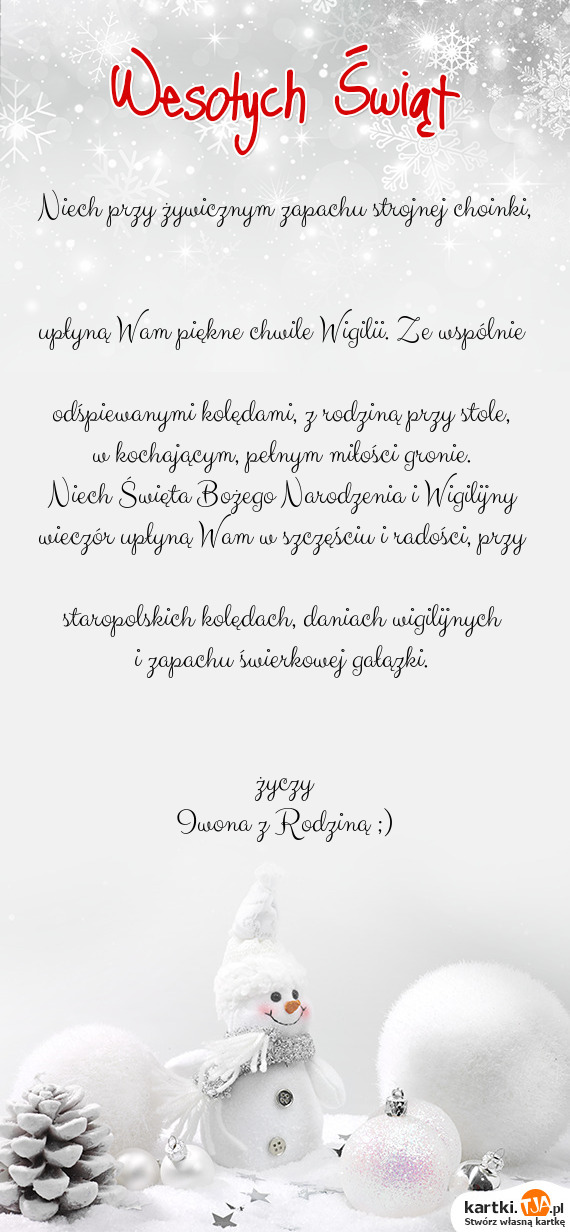 Wesołych Świąt
Niech przy żywicznym zapachu strojnej choinki,
upłyną Wam piękne chwile Wigilii. Ze wspólnie
odśpiewanymi kolędami, z rodziną przy stole,
w kochającym, pełnym miłości gronie.
Niech Święta Bożego Narodzenia i Wigilijny
wieczór upłyną Wam w szczęściu i radości, przy
staropolskich kolędach, daniach wigilijnych
i zapachu świerkowej gałązki.
życzy
Iwona z Rodziną ;)
kartki.TJA.pl
Stwórz własną kartkę